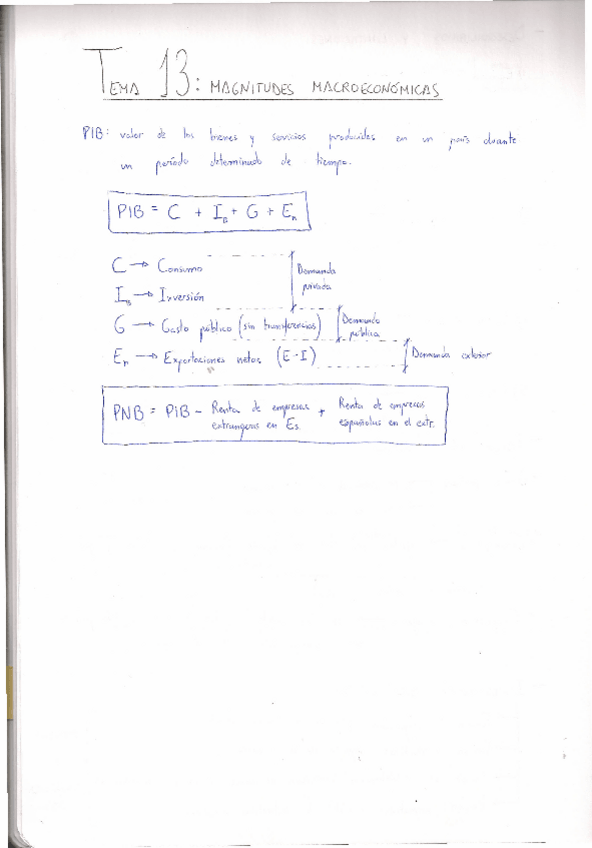 TEMA 13: MAGNITUDES MACROECONÓMICAS
PIB: valor de los bienes y servicios producidos en un país durante
un período determinado de tiempo.
PIB = C + I_B + G + E_n
C → Consumo
Demanda privada
I_B → Inversión
G → Gasto público (sin transferencias)
Demanda pública
E_n → Exportaciones netas (E-I)
Demanda exterior
PNB = PIB - Renta de empresas extrangeras en Es. + Renta de empresas españolas en el extr.